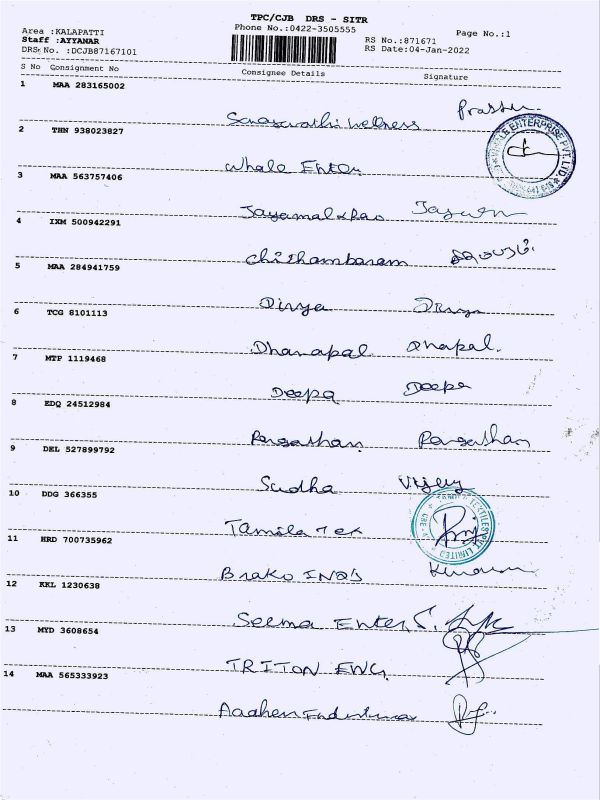 TPC/CJB DRS - SITR
Area :KALAPATTI Phone No.:0422-3505555 Page No.:1
Staff :AIYANAR RS No.:871671
DRS No. :DCJB87167101 RS Date:04-Jan-2022
S No Consignment No Consignee Details Signature
1 MAA 283165002
Saraswathi Welness
2 THN 938023827
Whale Enter
3 MAA 563757406
4 IXM 500942291
Chithambaram
5 MAA 284941759
Divya Divya
6 TCG 8101113
Dhanapal
7 MTP 1119468
Deepa Deepa
8 EDQ 24512984
Rangathan Rangathan
9 DEL 527899792
Sudha Vijay
10 DDG 366355
Tamila Tex
11 HRD 700735962
Brako INDS
12 KKL 1230638
Seema Enter
13 MYD 3608654
TRITON ENG.
14 MAA 565333923